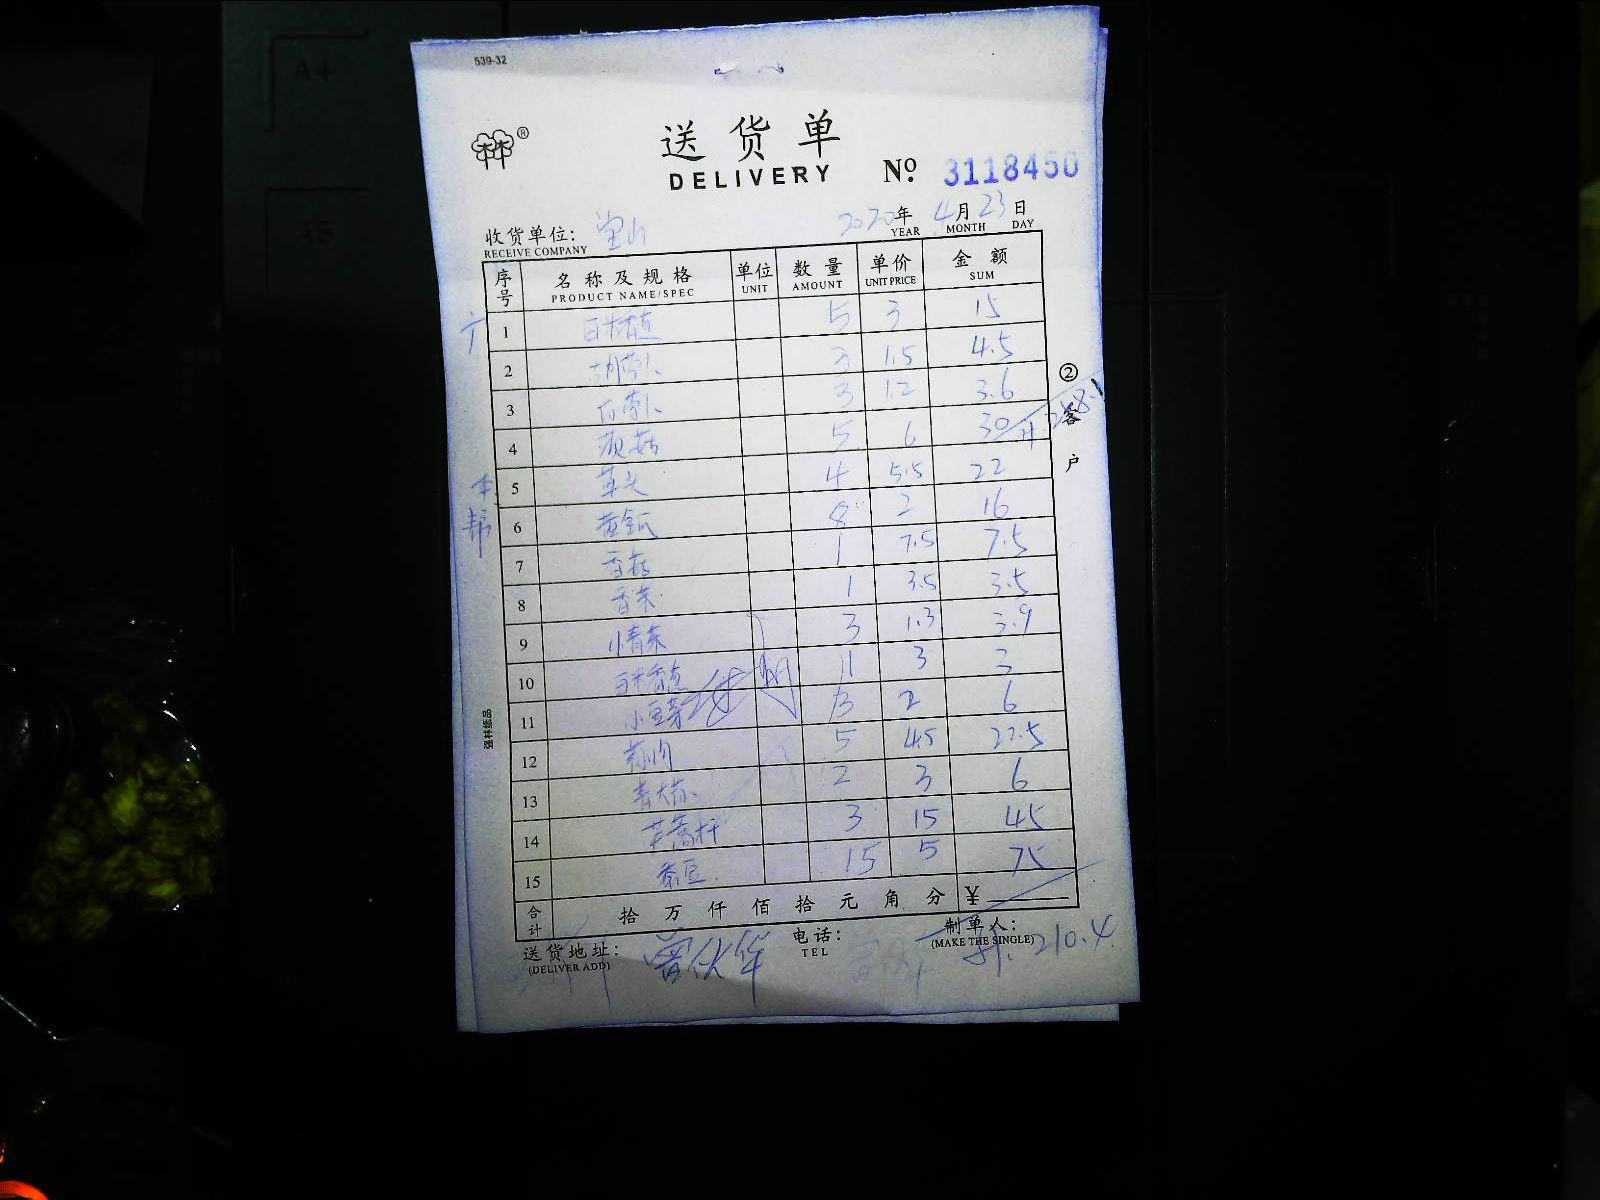 539-32
送货单
DELIVERY
№ 3118450
收货单位: 宝山 2020年 4月 23日
RECEIVE COMPANY YEAR MONTH DAY
序号 名称及规格 单位 数量 单价 金额
PRODUCT NAME/SPEC UNIT AMOUNT UNIT PRICE SUM
1 白米苋 5 3 15
2 胡萝卜 3 1.5 4.5
3 白萝卜 3 1.2 3.6
4 5 6 30
5 草头 4 5.5 22
6 黄金瓜 8 2 16
7 香菇 1 7.5 7.5
8 香菜 1 3.5 3.5
9 小青菜 3 1.3 3.9
10 11 3 3
11 小豆芽 3 2 6
12 5 4.5 22.5
13 2 3 6
14 3 15 45
15 15 5 75
合计 拾 万 仟 佰 拾 元 角 分 ¥
②客户
本帮
强林纸品
送货地址: 电话: 制单人:
(DELIVER ADD) TEL (MAKE THE SINGLE)
210.4